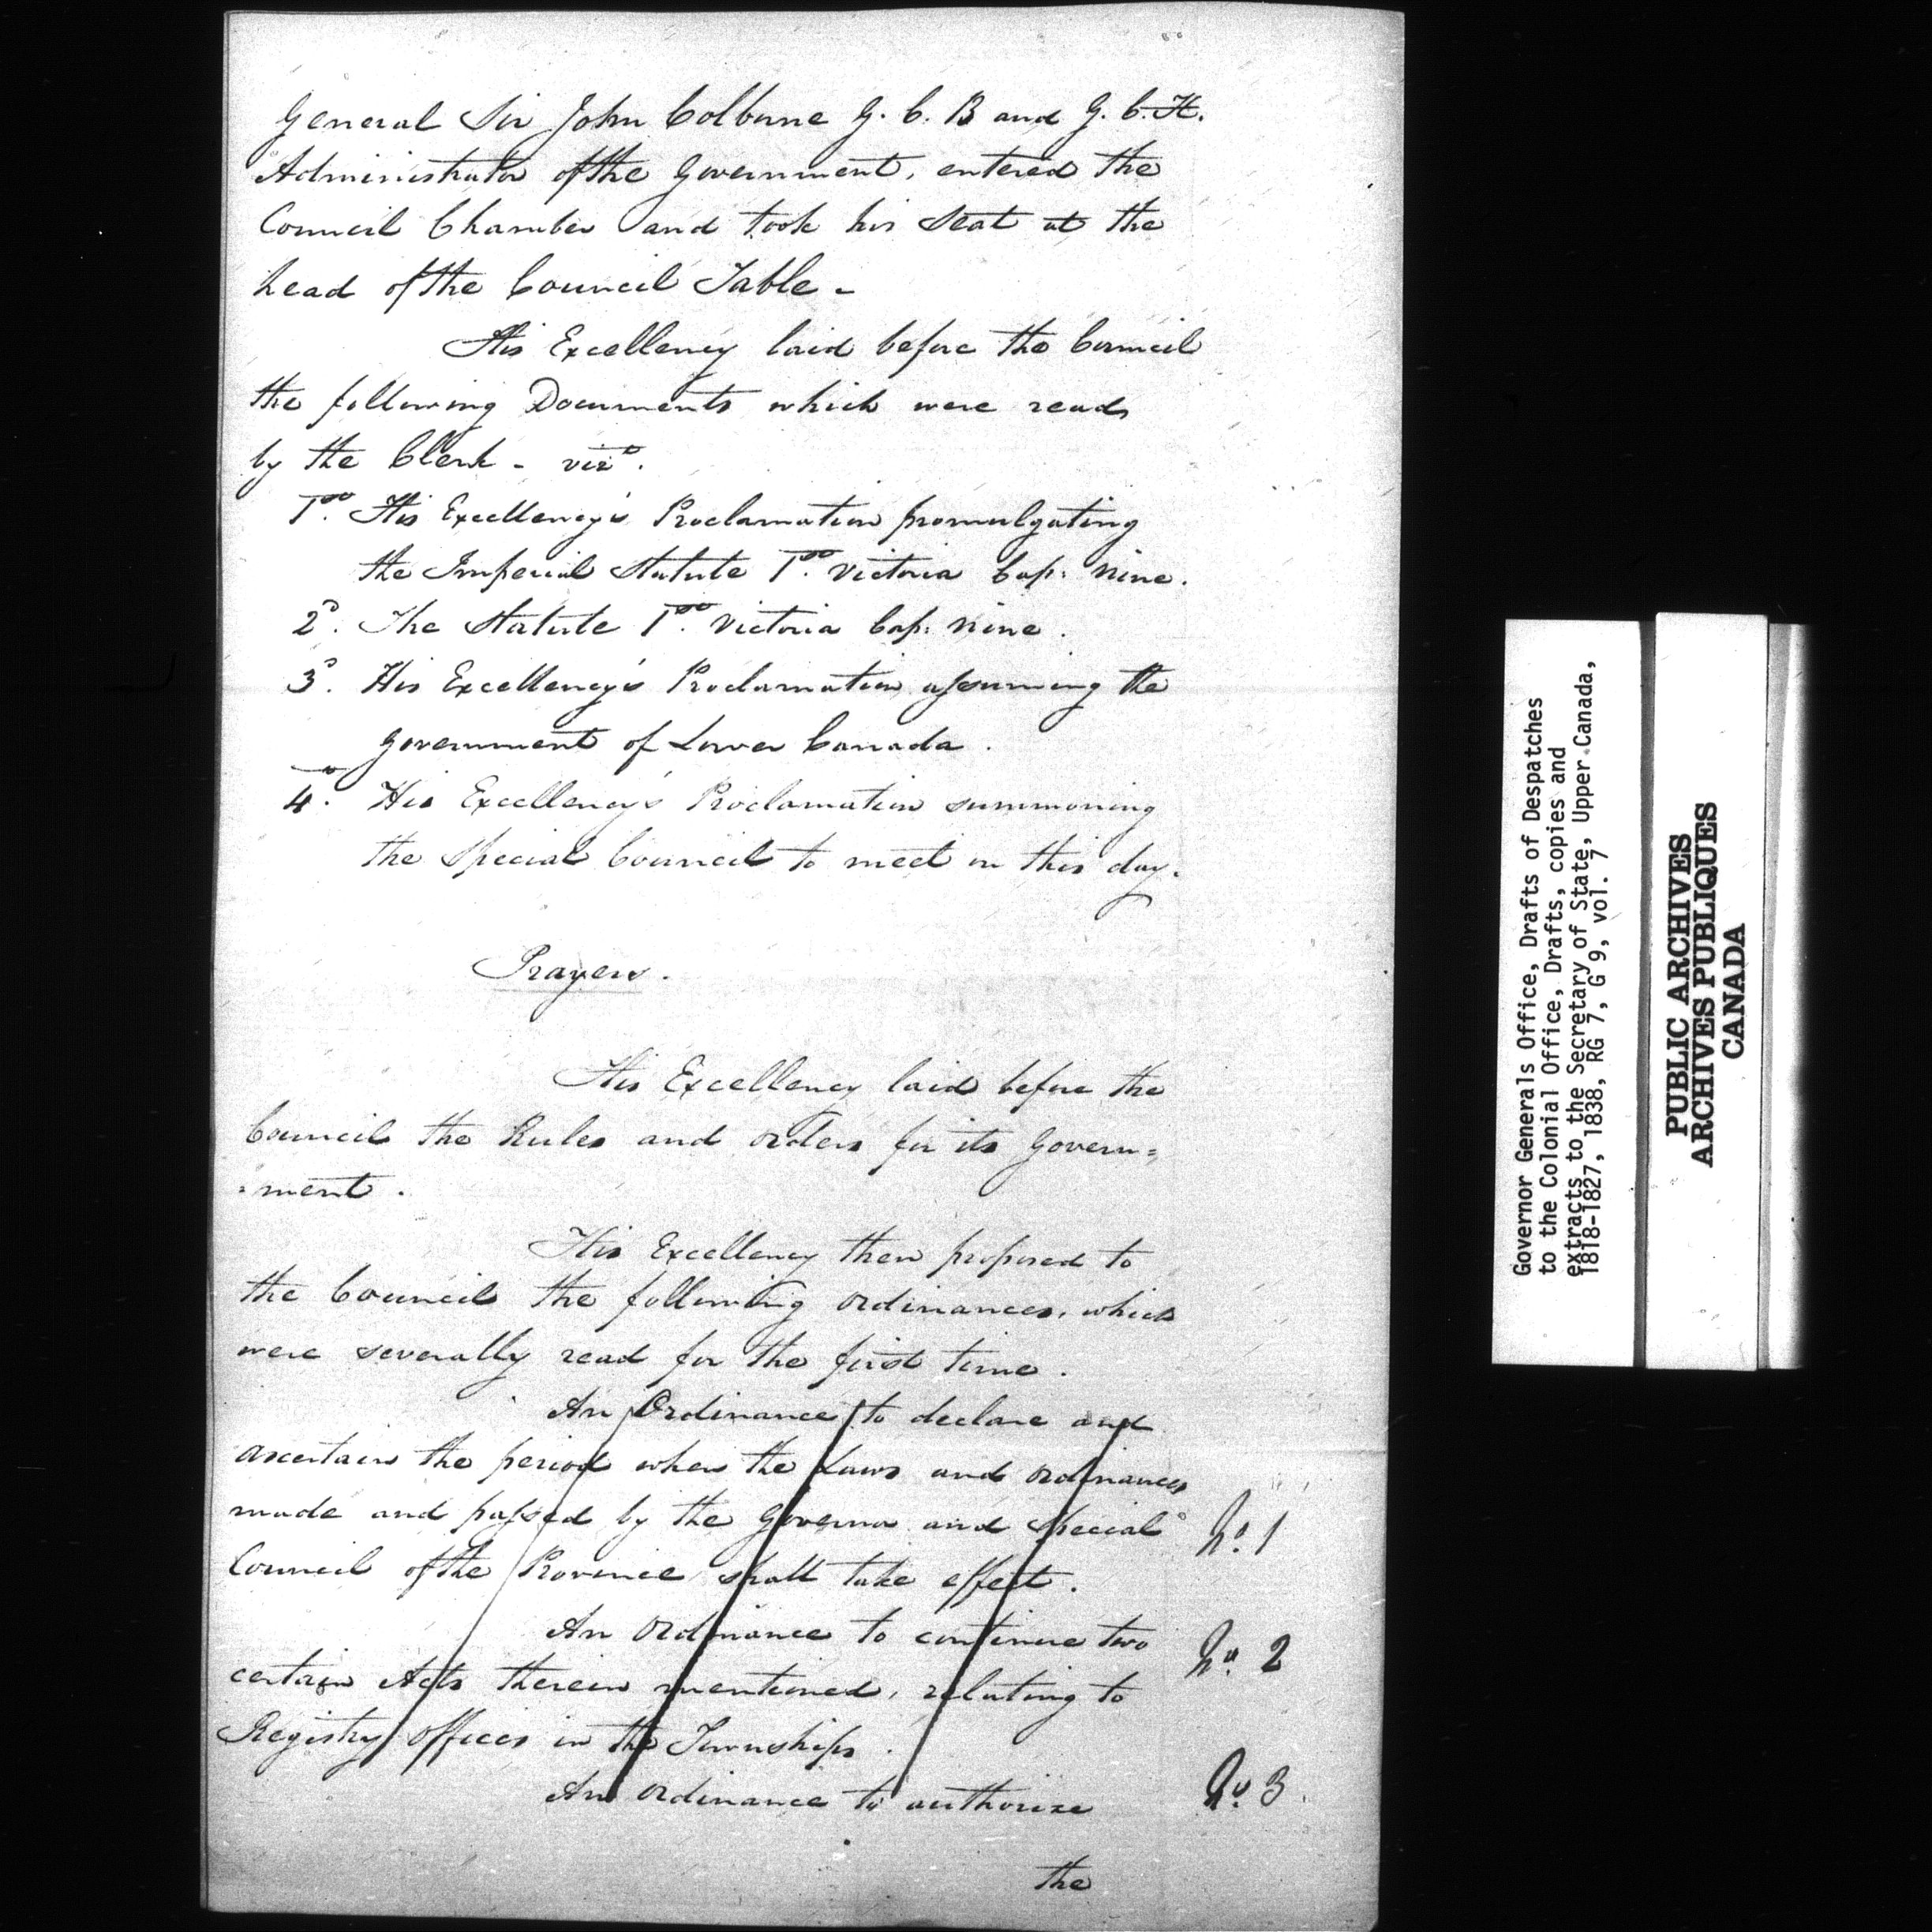 General Sir John Colborne G. C. B and G. C. H.
Administrator of the Government, entered the
Council Chamber and took his seat at the
head of the Council Table -
His Excellency laid before the Council
the following Documents which were read
by the Clerk - vizt.
1mo. His Excellency's Proclamation promulgating
the Imperial Statute 1mo. Victoria Cap: nine.
2o. The Statute 1mo. Victoria Cap: nine.
3o. His Excellency's Proclamation assuming the
Government of Lower Canada.
4o. His Excellency's Proclamation summoning
the Special Council to meet on this day.
Prayers.
His Excellency laid before the
Council the Rules and orders for its Govern=
=ment.
His Excellency then proposed to
the Council the following Ordinances, which
were severally read for the first time.
An Ordinance to declare and
ascertain the period when the Laws and ordinances
made and passed by the Governor and Special
Council of the Province shall take effect.
No. 1
An Ordinance to continue two
certain Acts therein mentioned, relating to
Registry offices in the Townships.
No. 2
An Ordinance to authorize
No. 3.
the
Governor Generals Office, Drafts of Despatches
to the Colonial Office, Drafts, copies and
extracts to the Secretary of State, Upper Canada,
1818-1827, 1838, RG 7, G 9, vol. 7
PUBLIC ARCHIVES
ARCHIVES PUBLIQUES
CANADA